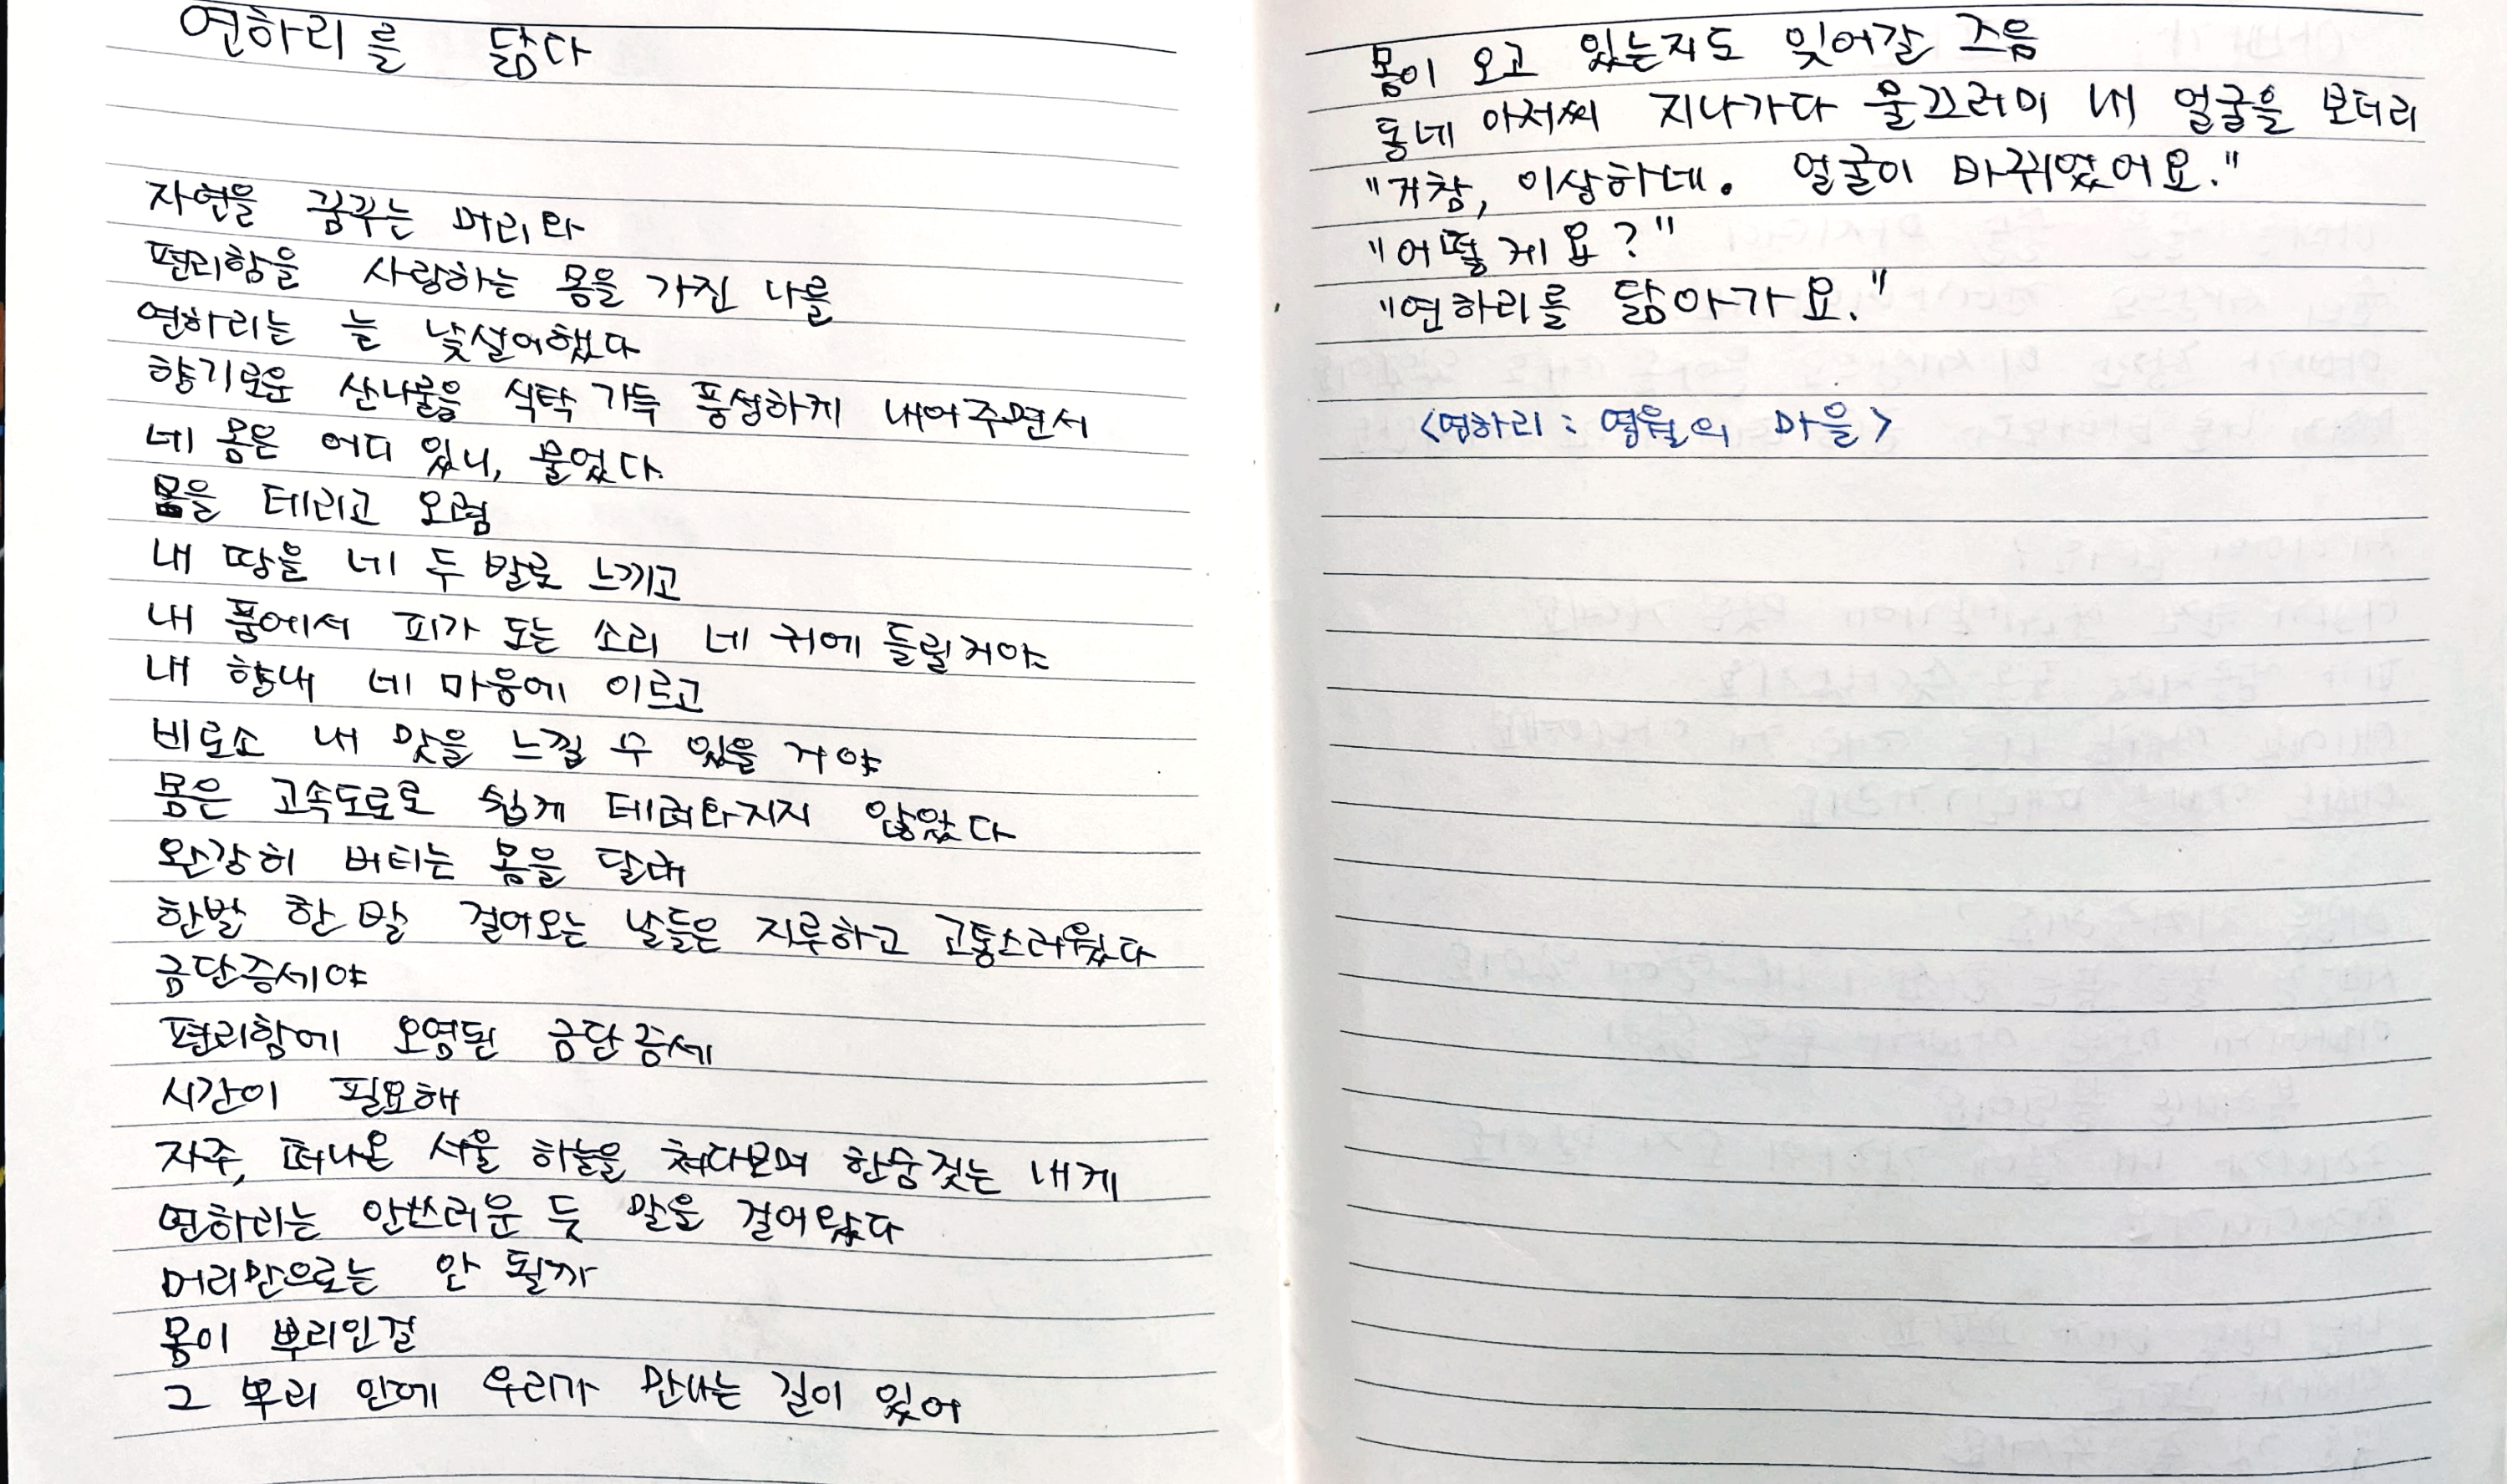 연하리를 닮다
자연을 꿈꾸는 머리와
편리함을 사랑하는 몸을 가진 나를
연하리는 늘 낯설어했다
향기로운 산나물을 식탁 가득 풍성하게 내어주면서
네 몸은 어디 있니, 물었다.
몸을 데리고 오렴
내 땅을 네 두 발로 느끼고
내 품에서 피가 도는 소리 네 귀에 들릴거야
내 향내 네 마음에 이르고
비로소 내 맛을 느낄 수 있을 거야
몸은 고속도로로 쉽게 데려와지지 않았다
완강히 버티는 몸을 달래
한발 한 발 걸어오는 날들은 지루하고 고통스러웠다
금단증세야
편리함에 오염된 금단증세
시간이 필요해
자주, 떠나온 서울 하늘을 쳐다보며 한숨짓는 내게
연하리는 안쓰러운 듯 말을 걸어왔다
머리만으로는 안 될까
몸이 뿌리인걸
그 뿌리 안에 우리가 만나는 길이 있어
몸이 오고 있는지도 잊어갈 즈음
동네 아저씨 지나가다 물끄러미 내 얼굴을 보더리
"거참, 이상하네. 얼굴이 바뀌었어요."
"어떻게요?"
"연하리를 닮아가요."
<연하리 : 영월의 마을>